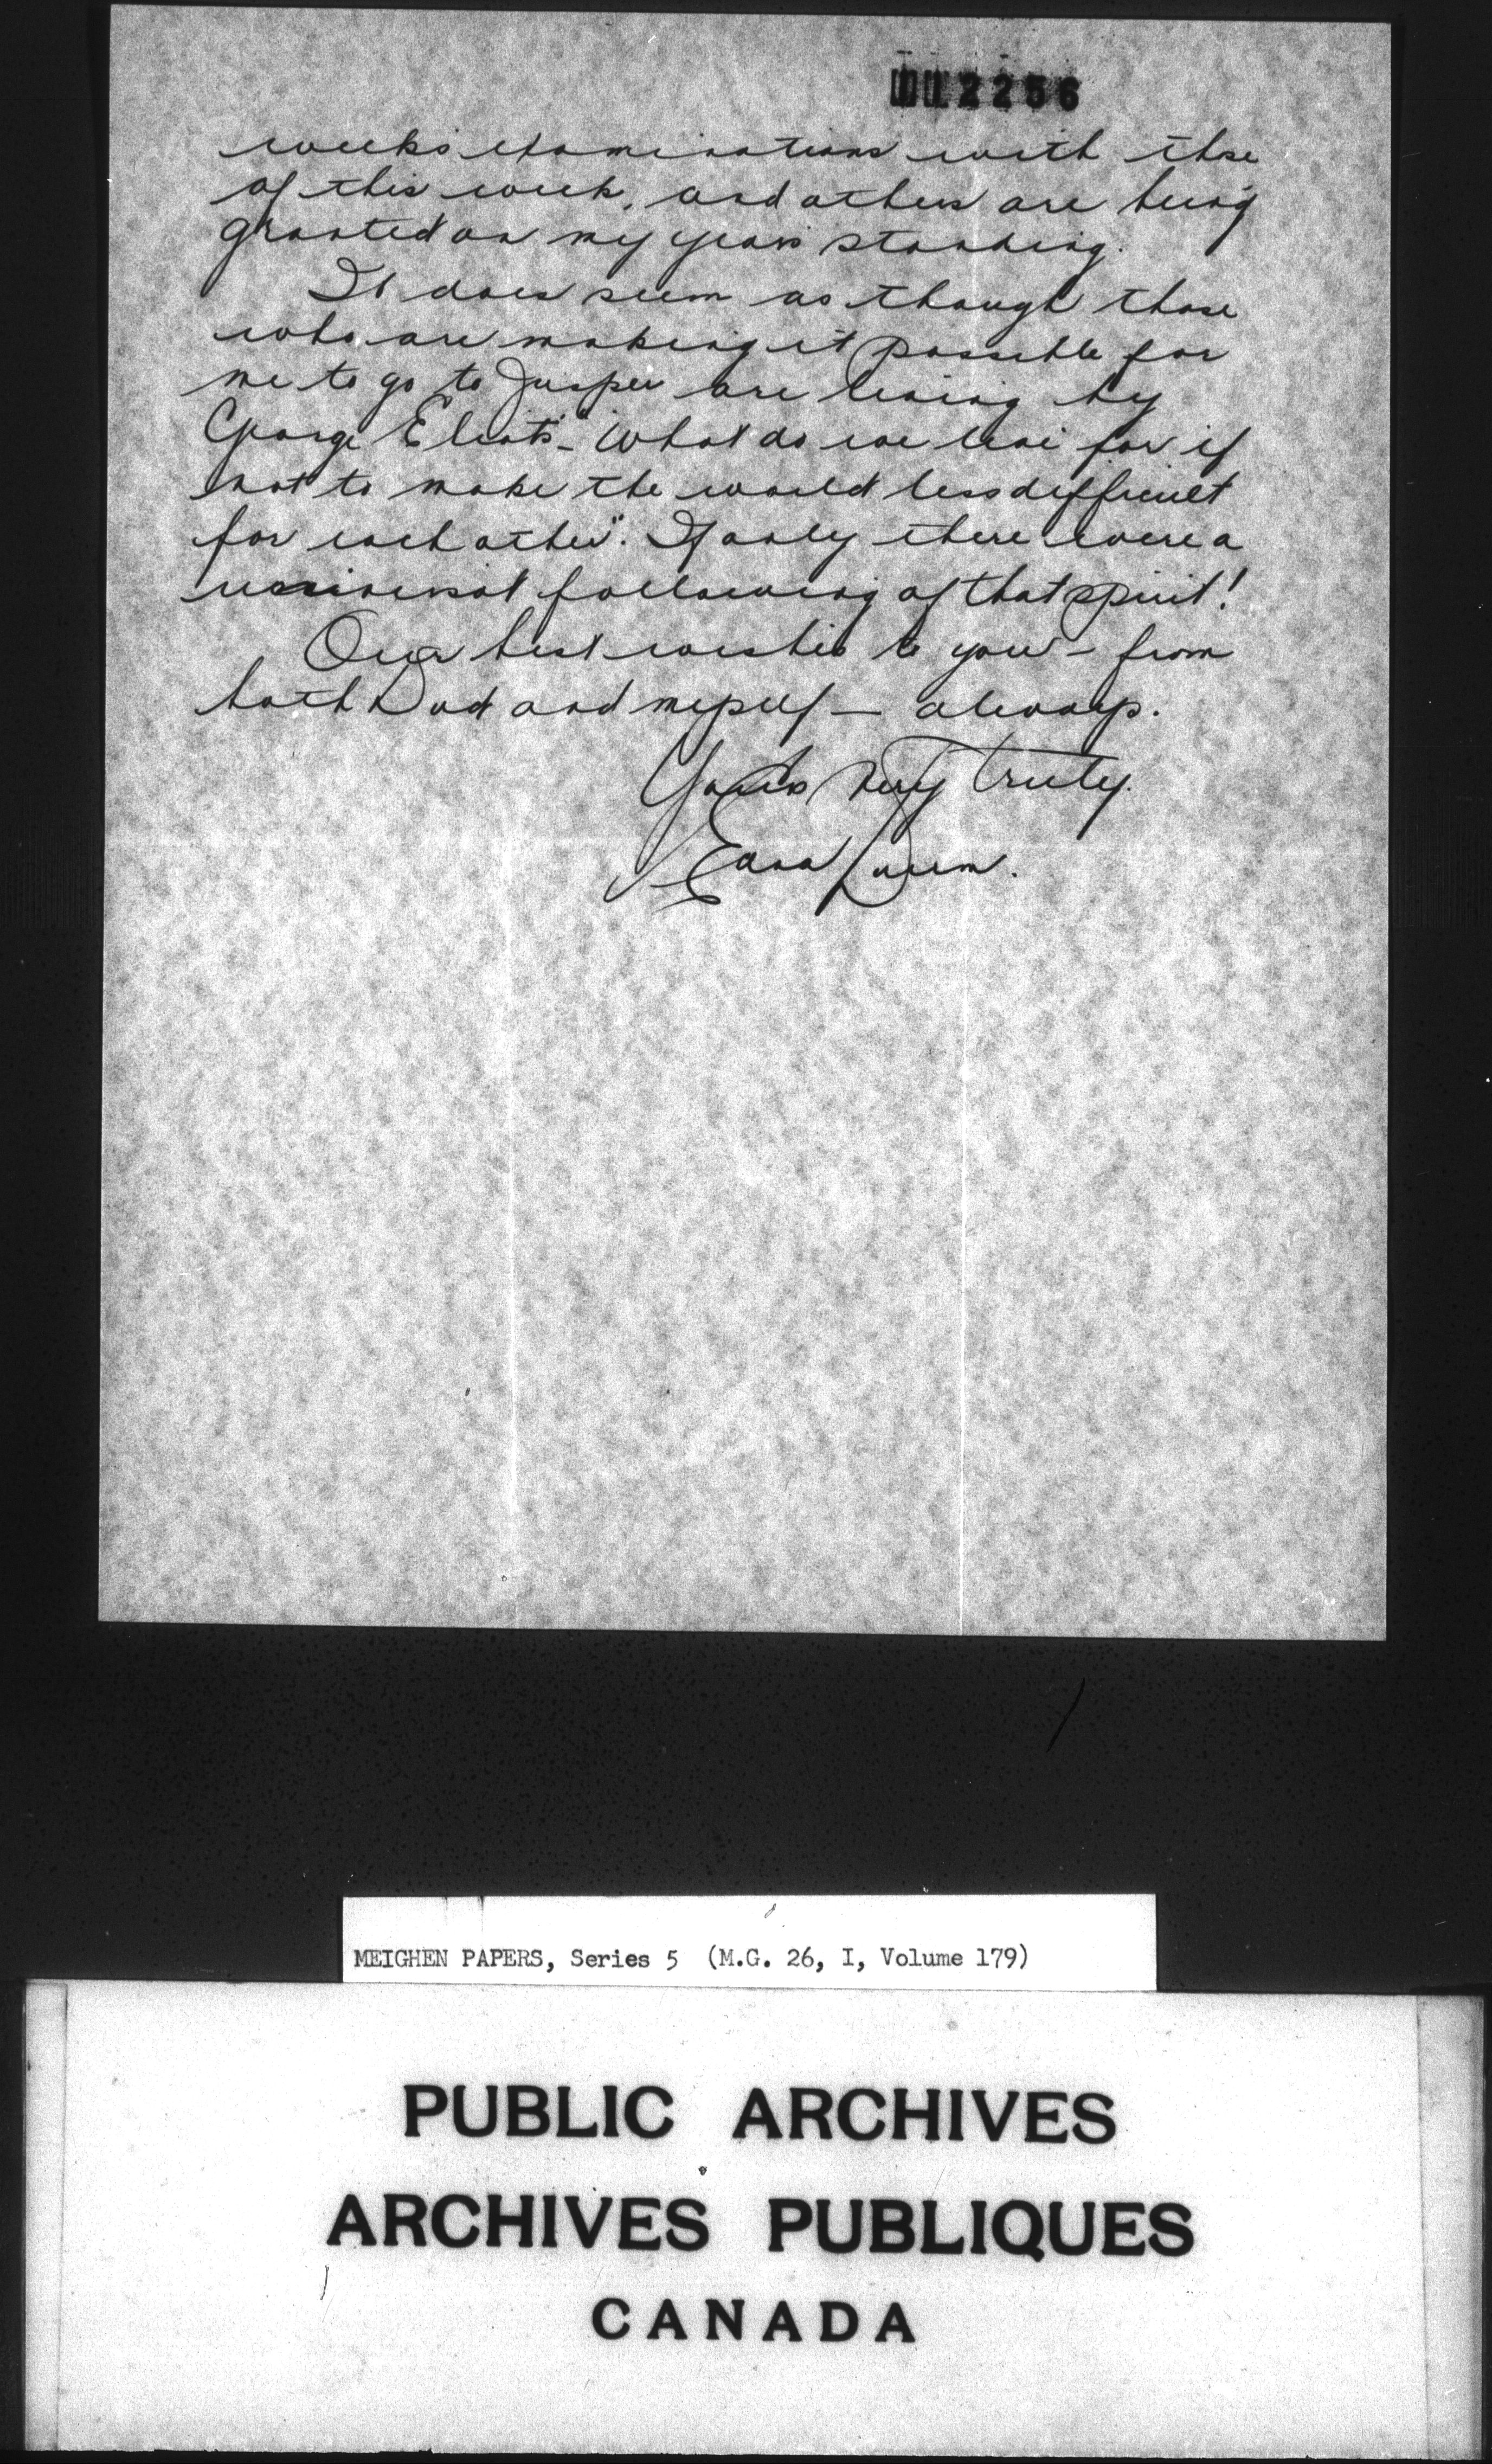 112256
week's examinations with those
of this week, and others are being
granted on my years standing.
It does seem as though those
who are making it possible for
me to go to Jasper are living by
George Eliot's - "What do we live for if
not to make the world less difficult
for each other". If only there were a
universal following of that spirit!
Our best wishes to you - from
both Dad and myself — always.
Yours very truly.
MEIGHEN PAPERS, Series 5 (M.G. 26, I, Volume 179)
PUBLIC ARCHIVES
ARCHIVES PUBLIQUES
CANADA